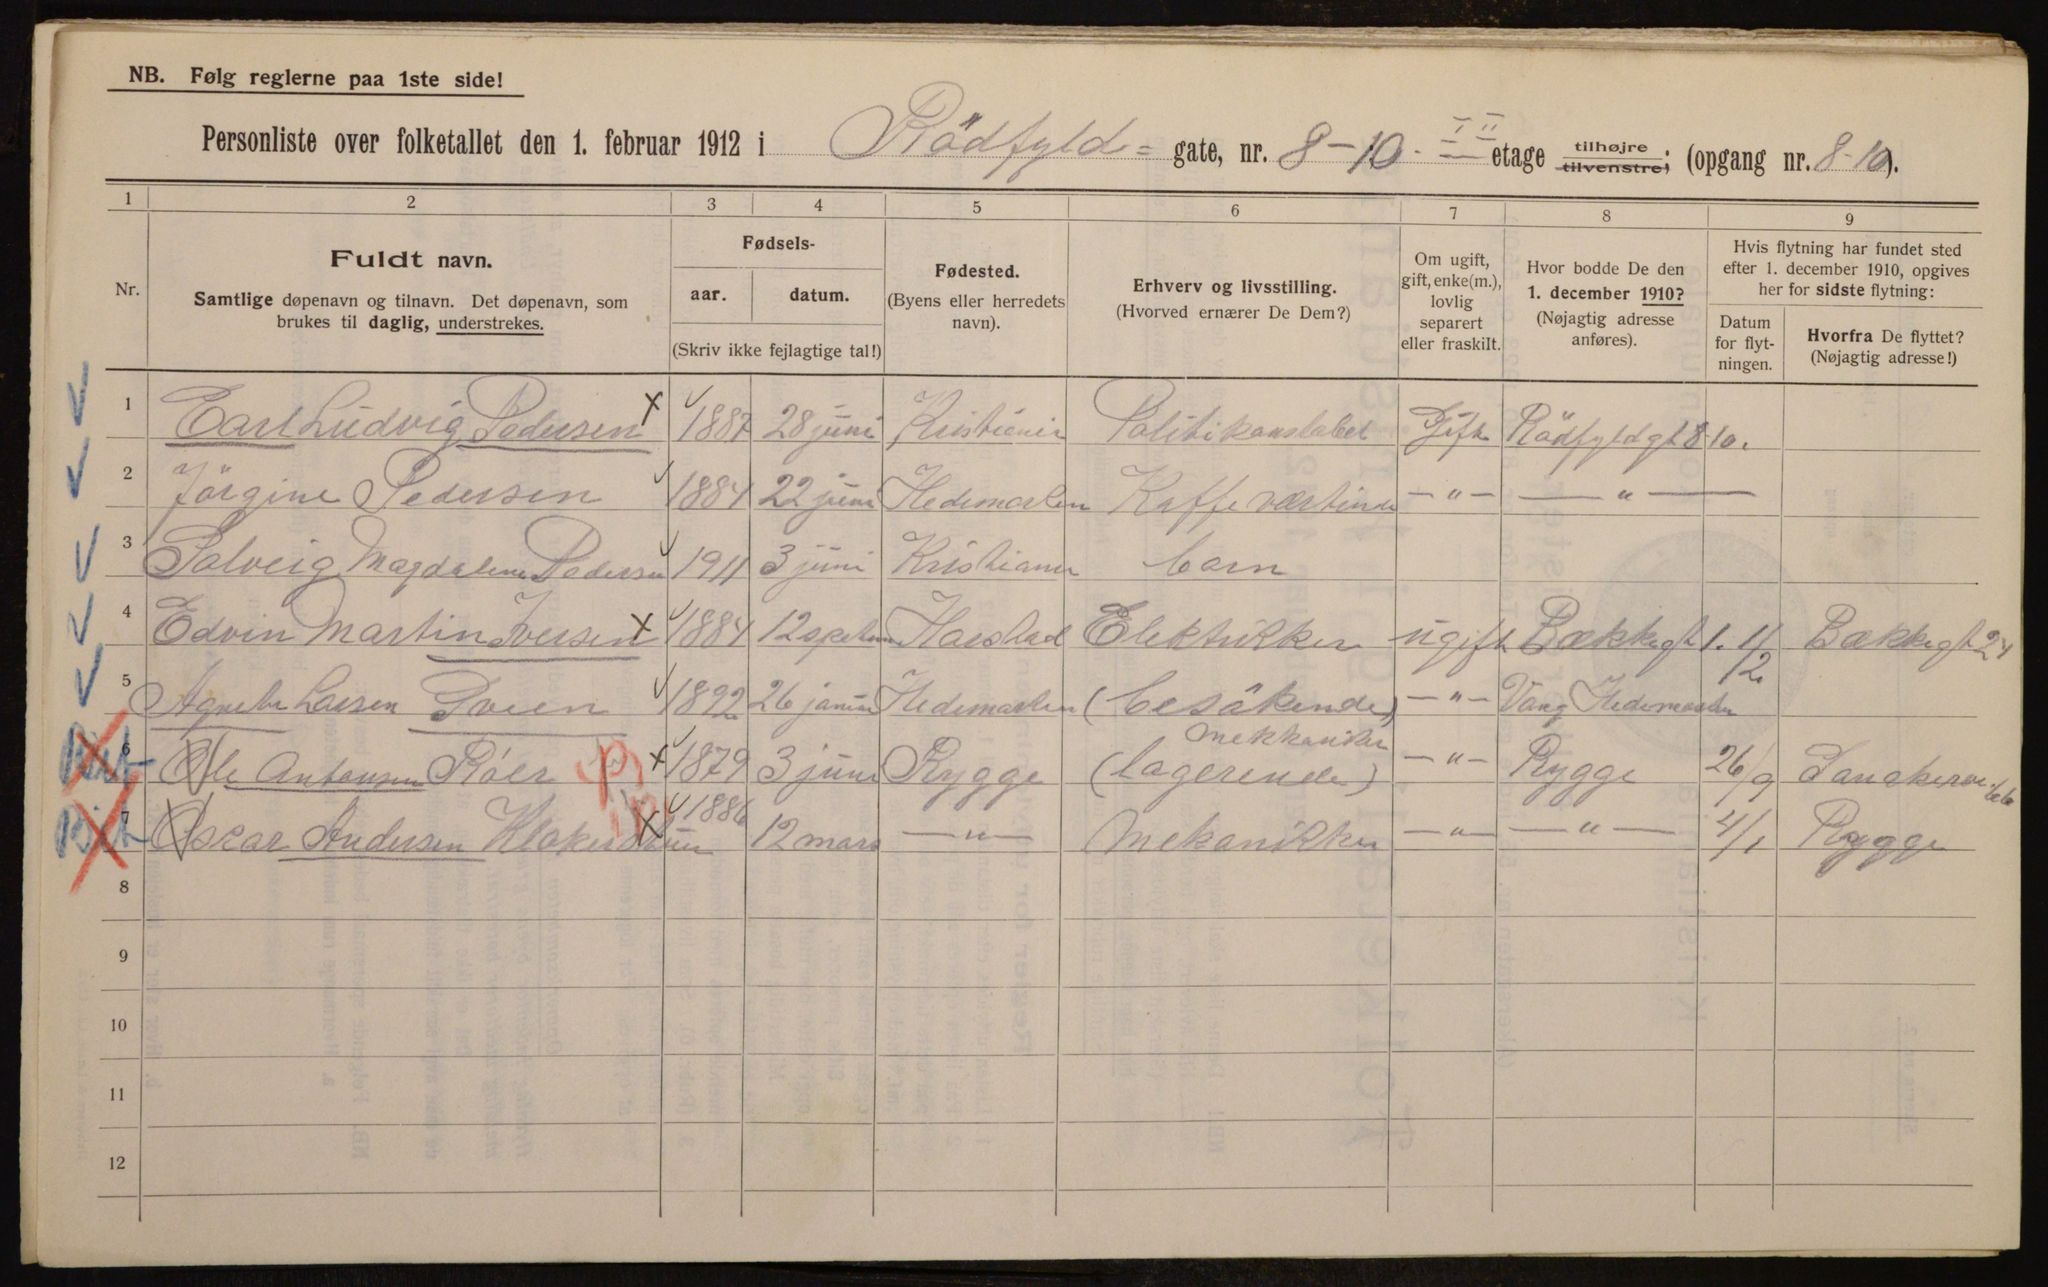 NB. Følg reglerne paa 1ste side!
Personliste over folketallet den 1. februar 1912 i Rödfyld= gate, nr. 8-10. III etage tilhøjre tilvenstre; (opgang nr. 8-10).
1 2 3 4 5 6 7 8 9
Nr.
Fuldt navn.
Samtlige døpenavn og tilnavn. Det døpenavn, som
brukes til daglig, understrekes.
Fødsels-
aar. datum.
(Skriv ikke fejlagtige tal!)
Fødested.
(Byens eller herredets
navn).
Erhverv og livsstilling.
(Hvorved ernærer De Dem?)
Om ugift,
gift, enke(m.),
lovlig
separert
eller fraskilt.
Hvor bodde De den
1. december 1910?
(Nøjagtig adresse
anføres).
Hvis flytning har fundet sted
efter 1. december 1910, opgives
her for sidste flytning:
Datum
for flyt-
ningen.
Hvorfra De flyttet?
(Nøjagtig adresse!)
1 Earl Ludvig Pedersen x 1887 28 juni Kristiania Politikonstabel Gift Rödfyldgt 8-10.
2 Jörgine Pedersen 1884 22 juni Hedemarken Kaffeværtinde — " — — " —
3 Solveig Magdalene Pedersen 1911 3 juni Kristiania barn
4 Edvin Martin Iversen x 1884 12 Harstad Elektriker ugift Bækkegt 1. 11/12 Bækkegt 24
5 Larsen 1892 26 Hedemarken (besökende) — " — Vang Hedemarken
6 Ole Antonsen x 1879 3 juni Rygge Mekkaniker (lagerende) — " — Rygge 26/9
7 Oscar Andersen x 1886 12 mars — " — Mekanikker — " — — " — 4/1 Rygge
8
9
10
11
12